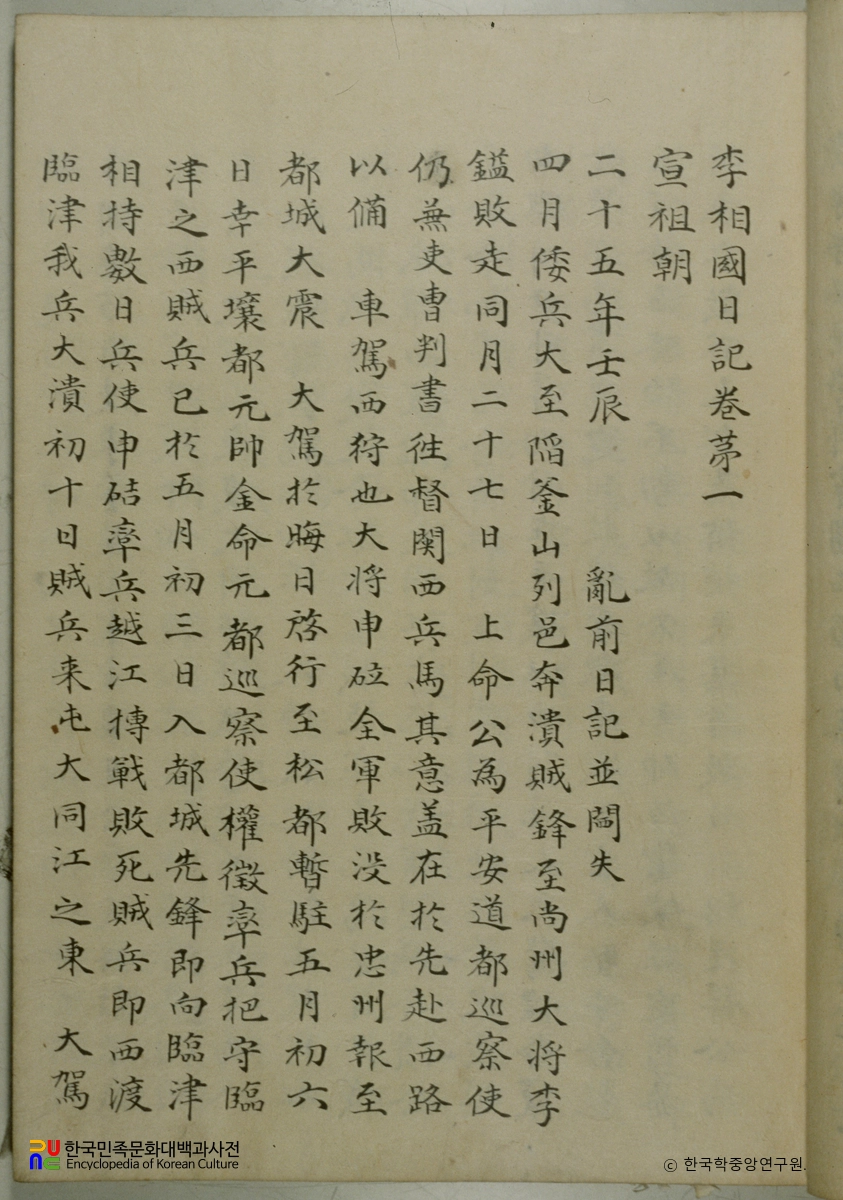 李相國日記卷苐一
宣祖朝
二十五年壬辰 亂前日記並閪失
四月倭兵大至陷釜山列邑奔潰賊鋒至尚州大將李
鎰敗走同月二十七日 上命公為平安道都巡察使
仍兼吏曹判書徃督関西兵馬其意盖在於先赴西路
以俻 車駕西狩也大將申砬全軍敗沒於忠州報至
都城大震 大駕於晦日啓行至松都暫駐五月初六
日幸平壤都元帥金命元都巡察使權徵率兵把守臨
津之西賊兵已於五月初三日入都城先鋒即向臨津
相持數日兵使申硈率兵越江摶戰敗死賊兵即西渡
臨津我兵大潰初十日賊兵来屯大同江之東 大駕
한국민족문화대백과사전
Encyclopedia of Korean Culture
© 한국학중앙연구원.